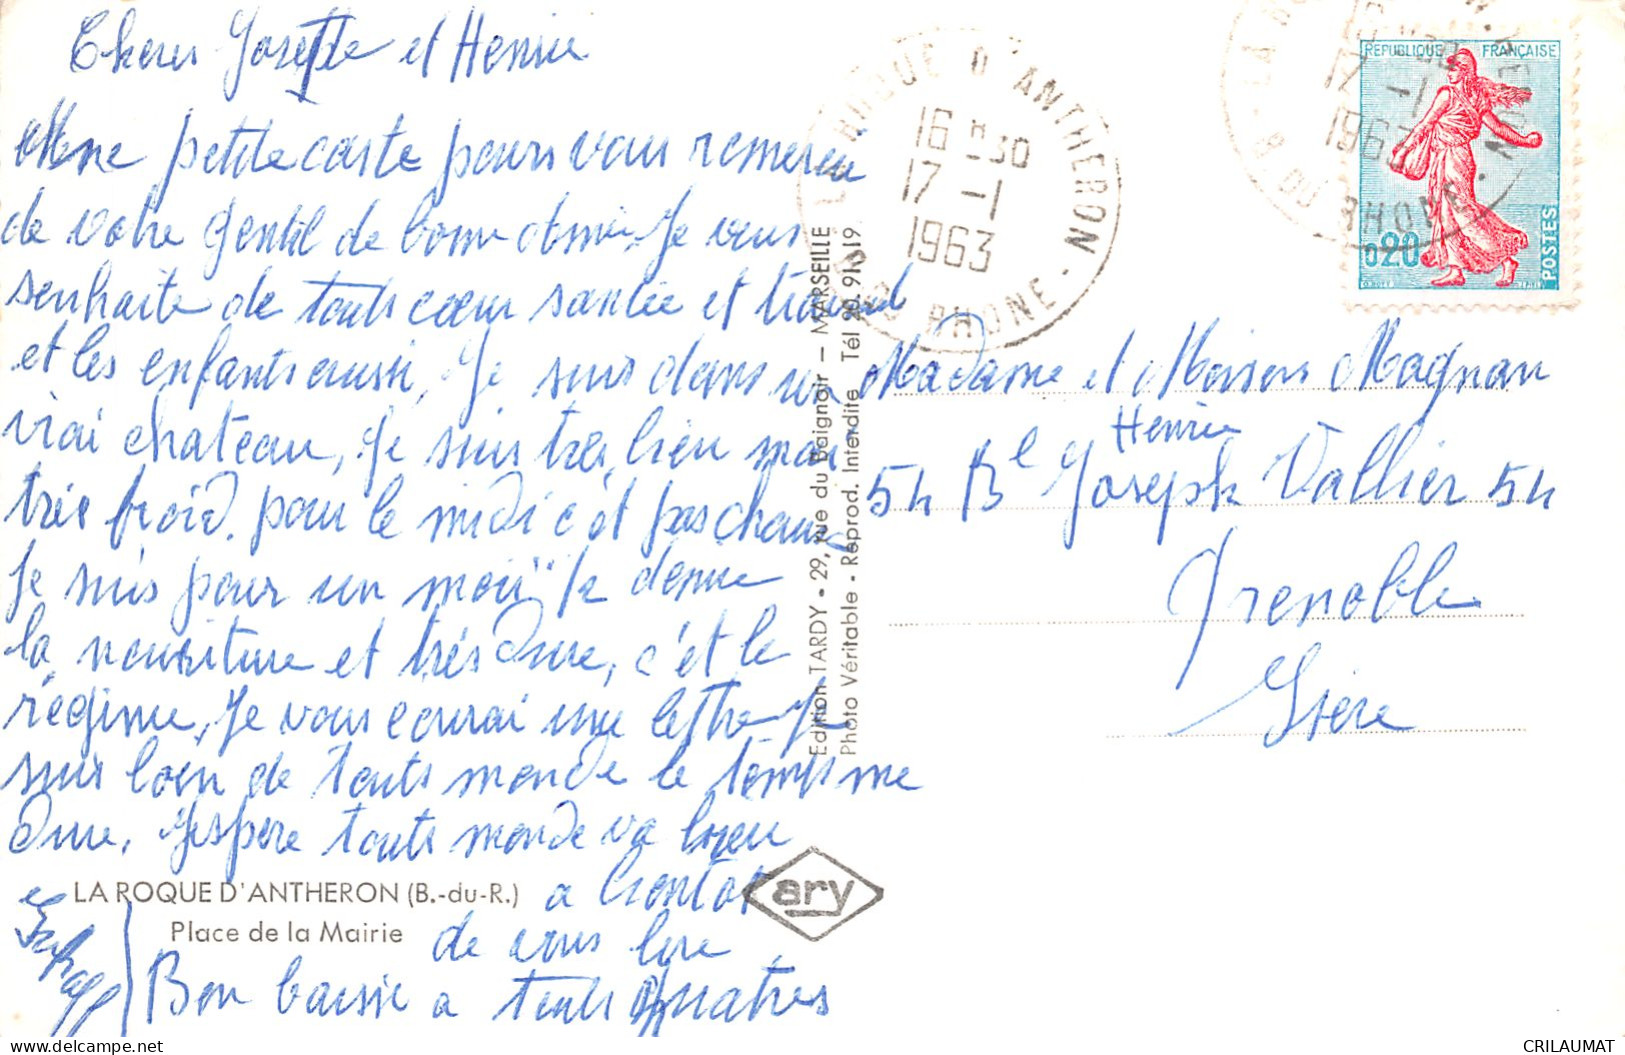 Chers Josette et Henrie
Une petite carte pours vous remercier
de votre gentil de bonne année, Je vous
souhaite de touts cœur santée et travail
et les enfants aussi, Je suis dans un
vrai chateau, Je suis trés, bien mais
trés froid, pour le midi c'ét pas chaud
Je suis pour un mois Je donne
la nourriture et trés dure, c'ét le
régime, Je vous ecurai une lettre Je
suis loin de touts monde le temps me
dure, J'éspère touts monde va bien
a bientot
de vous lire
Bon baisse a touts quatres
LA ROQUE D'ANTHERON (B.-du-R.)
Place de la Mairie
Edition TARDY • 29, rue du Baignoir — MARSEILLE
Photo Véritable • Reprod. Interdite Tél 20.91.19
ary
LA ROQUE D'ANTHERON
16 H 30
17 -1
1963
B. DU RHONE
16 H 30
17 -1
1963
B. DU RHONE
REPUBLIQUE FRANÇAISE
0,20
POSTES
Madame et Moisons Magnan
Henrie
54 Bl Joseph Vallier 54
Grenoble
Isère
CRILAUMAT